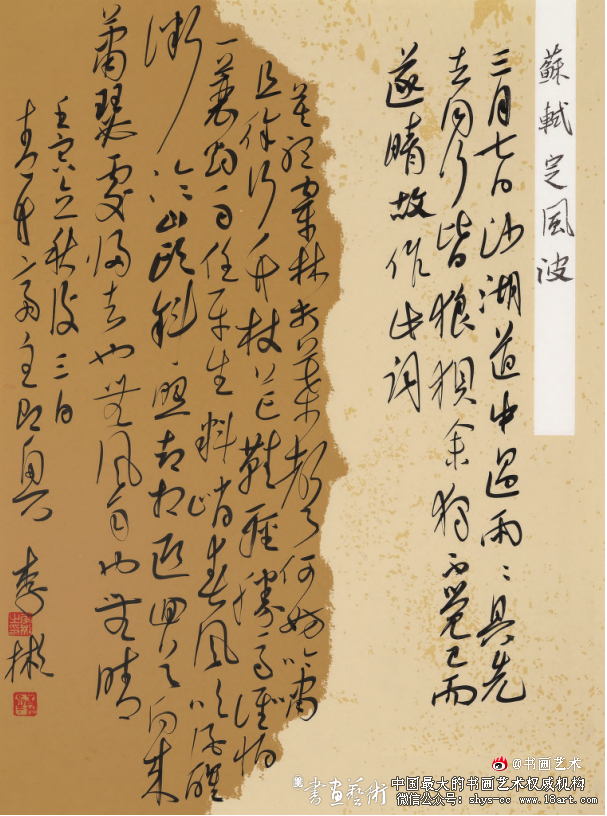 蘇軾定風波
三月七日沙湖道中遇雨〻具先
去同行皆狼狽余獨不覺已而
遂晴故作此詞
莫聽穿林打葉聲何妨吟嘯
且徐行竹杖芒鞋輕勝馬誰怕
一蓑烟雨任平生料峭春風吹酒醒
微冷山頭斜照却相迎回首向來
蕭瑟處歸去也無風雨也無晴
壬寅立秋後三日
齋主即興 李彬
@书画艺术
書畫藝術
中国最大的书画艺术权威机构
微信公众号：shys-cc www.18art.com